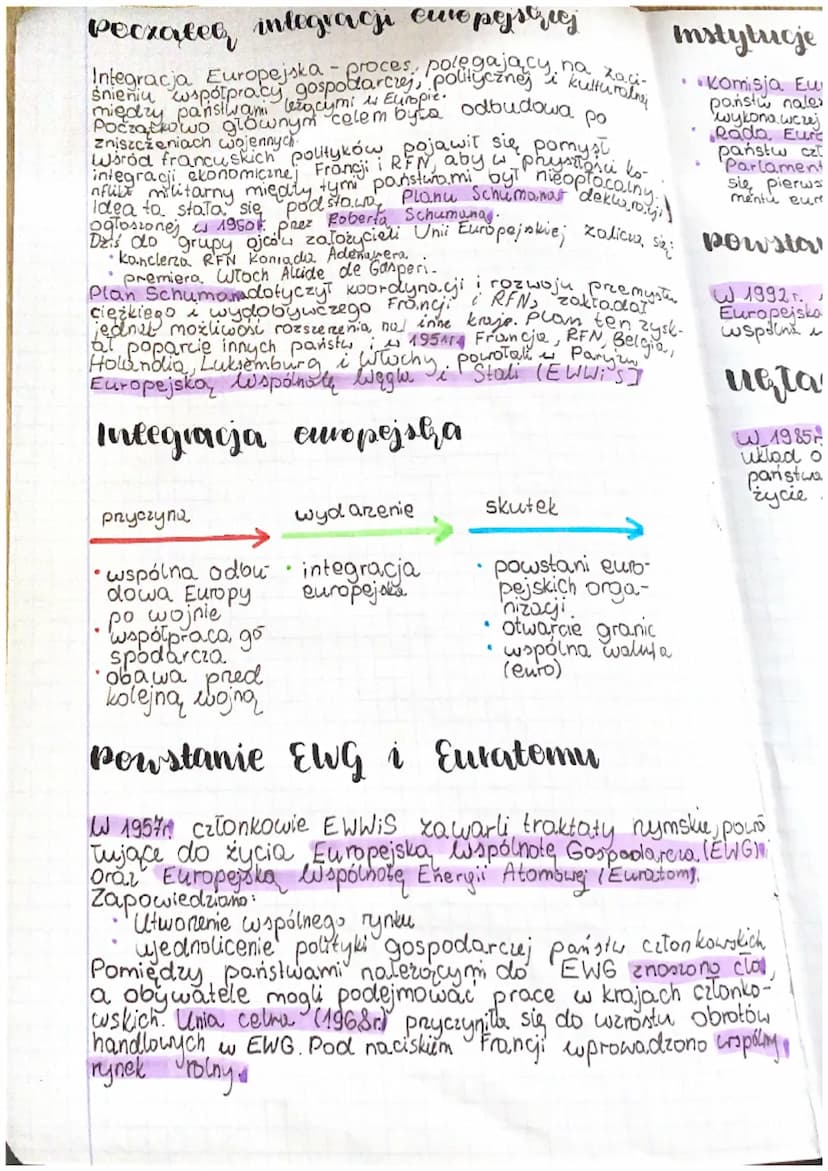 Początek integracji europejskiej
Integracja Europejska - proces, polegający na zaci-
śnieniu współpracy gospodarczej, politycznej i kulturalnej
między państwami leżącymi w Europie.
Początkowo głównym celem była odbudowa po
zniszczeniach wojennych.
Wśród francuskich polityków pojawił się pomysł
integracji ekonomicznej Francji i RFN, aby w przyszłości ko-
nflikt militarny między tymi państwami był nieopłacalny.
Idea ta stała się podstawą Planu Schumana deklaracji
ogłoszonej w 1950r. przez Roberta Schumana.
Dziś do grupy ojców założycieli Unii Europejskiej zalicza się:
• kanclerza RFN Konrada Adenauera.
• premiera Włoch Alcide de Gasperi.
Plan Schumana dotyczył koordynacji i rozwoju przemysłu
ciężkiego i wydobywczego Francji i RFN, zakładał
jednak możliwość rozszerzenia na inne kraje. Plan ten zysk-
ał poparcie innych państw i w 1951r. Francja, RFN, Belgia,
Holandia, Luksemburg i Włochy powołały w Paryżu
Europejską Wspólnotę Węgla i Stali (EWWiS)
Integracja europejska
przyczyna wydarzenie skutek
• wspólna odbu-
dowa Europy
po wojnie
• współpraca go
spodarcza
• obawa przed
kolejną wojną
• integracja
europejska
• powstani euro-
pejskich orga-
nizacji
• otwarcie granic
• wspólna waluta
(euro)
Powstanie EWG i Euratomu
W 1957r. członkowie EWWiS zawarli traktaty rzymskie, powo
łujące do życia Europejską Wspólnotę Gospodarczą (EWG)
oraz Europejską Wspólnotę Energii Atomowej (Euratom).
Zapowiedziano:
• Utworzenie wspólnego rynku
• ujednolicenie polityki gospodarczej państw członkowskich
Pomiędzy państwami należącymi do EWG znoszono cła,
a obywatele mogli podejmować prace w krajach członko-
wskich. Unia celna (1968r.) przyczyniła się do wzrostu obrotów
handlowych w EWG. Pod naciskiem Francji wprowadzono wspólny
rynek rolny.
Instytucje
• Komisja Eu
państw należ
wykonawczej
• Rada Euro
państw czł
• Parlament
się pierws
mentu eur
Powstan
W 1992r.
Europejska
wspólna
Ukła
W 1985r
układ o
państwa
życie